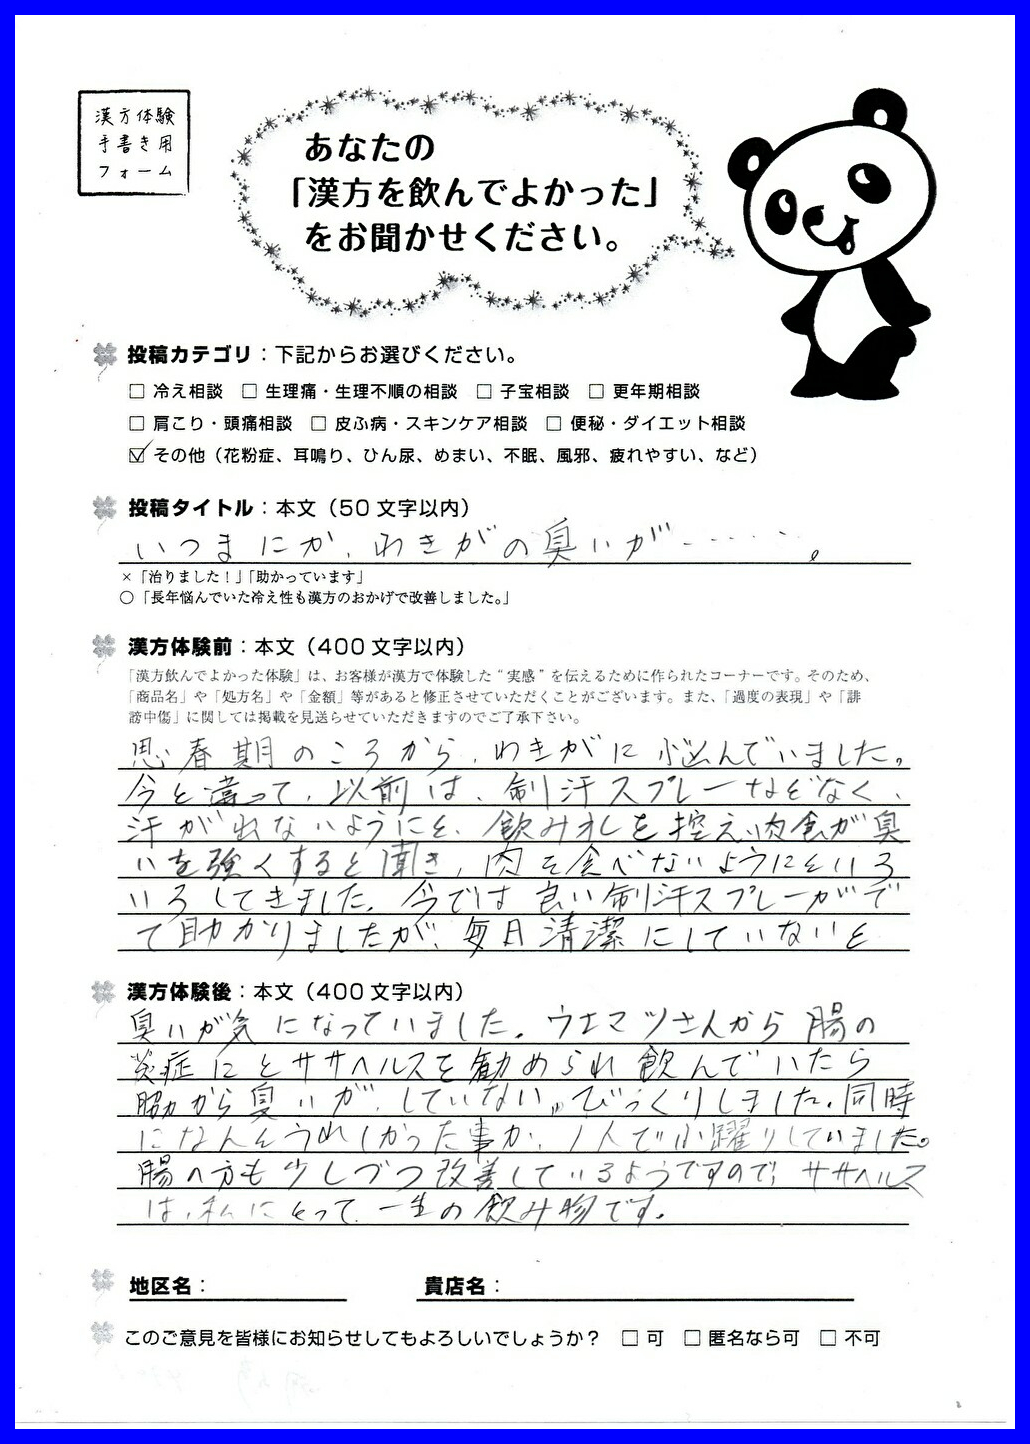 漢方体験
手書き用
フォーム
あなたの
「漢方を飲んでよかった」
をお聞かせください。
投稿カテゴリ：下記からお選びください。
□ 冷え相談 □ 生理痛・生理不順の相談 □ 子宝相談 □ 更年期相談
□ 肩こり・頭痛相談 □ 皮ふ病・スキンケア相談 □ 便秘・ダイエット相談
☑ その他（花粉症、耳鳴り、ひん尿、めまい、不眠、風邪、疲れやすい、など）
投稿タイトル：本文（50文字以内）
いつまにか、わきがの臭いが……。
×「治りました！」「助かっています」
○「長年悩んでいた冷え性も漢方のおかげで改善しました。」
漢方体験前：本文（400文字以内）
「漢方飲んでよかった体験」は、お客様が漢方で体験した“実感”を伝えるために作られたコーナーです。そのため、
「商品名」や「処方名」や「金額」等があると修正させていただくことがございます。また、「過度の表現」や「誹
謗中傷」に関しては掲載を見送らせていただきますのでご了承下さい。
思春期のころから、わきがに悩んでいました。
今と違って、以前は、制汗スプレーなどなく、
汗が出ないようにと、飲み水を控え、肉食が臭
いを強くすると聞き、肉を食べないようにといろ
いろしてきました。今では良い制汗スプレーがで
て助かりましたが、毎日清潔にしていないと
漢方体験後：本文（400文字以内）
臭いが気になっていました。ウエマツさんから腸の
炎症にとササヘルスを勧められ飲んでいたら
脇から臭いが、していない。びっくりしました。同時
になんとうれしかった事か、1人で小躍りしていました。
腸の方も少しづつ改善しているようですので、ササヘルス
は、私にとって一生の飲み物です。
地区名： 貴店名：
このご意見を皆様にお知らせしてもよろしいでしょうか？ □ 可 □ 匿名なら可 □ 不可